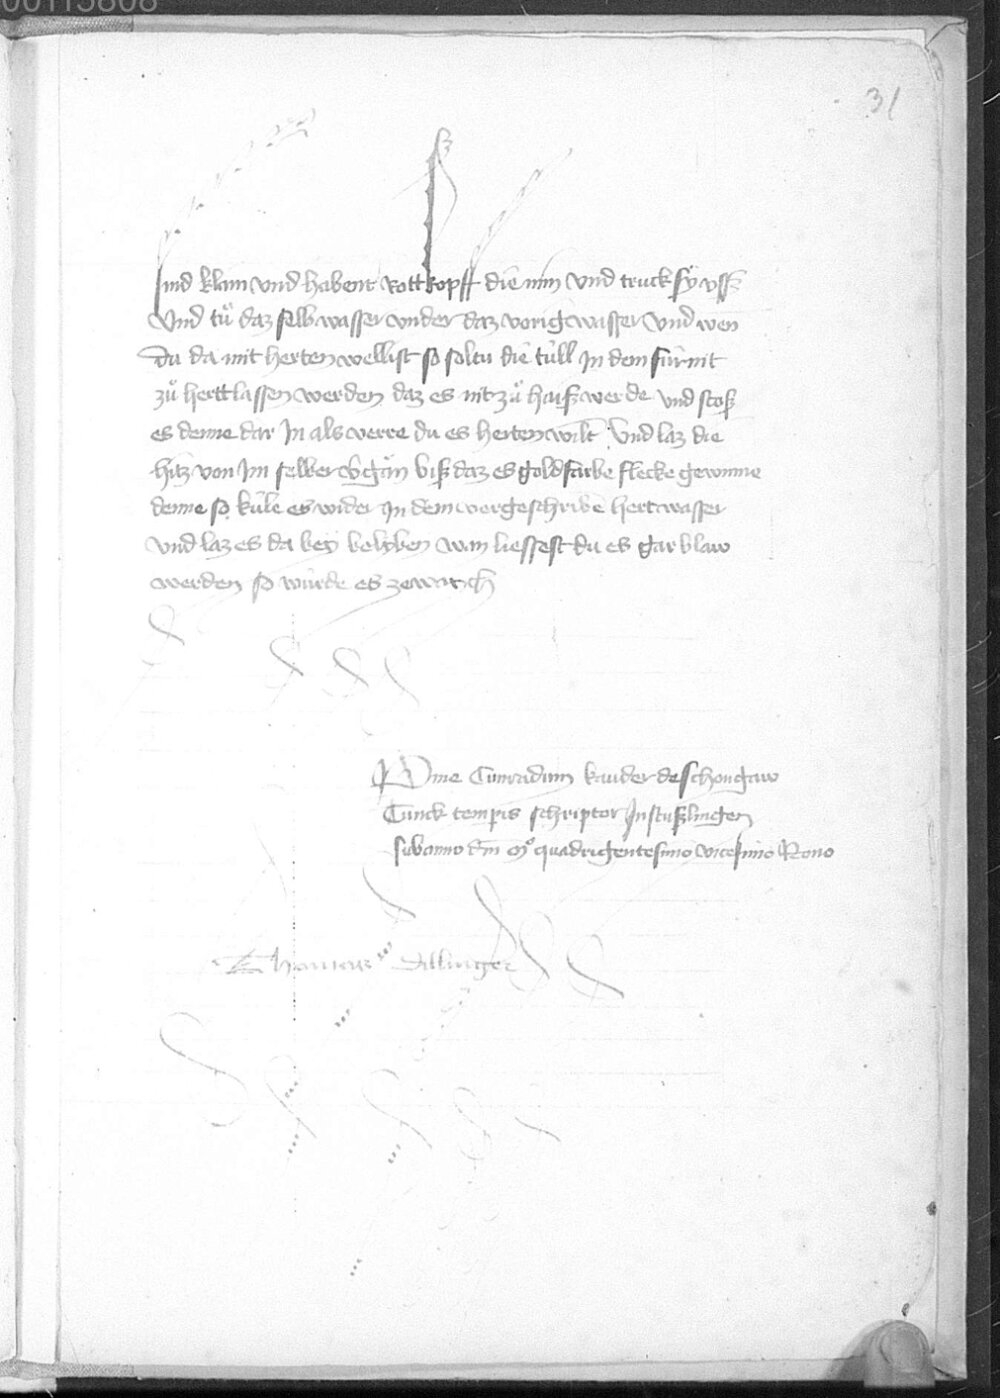 00115808
31
sind klain und habent rott kopff die nim und truck sy uss
Und tů daz selb wasser under daz vorig wasser und wen
Du da mit herten wellist so soltu die tüll In dem für nit
zů hertt lassen werden daz es nit zů haiß werde und stoß
es denne dar In als verre du es herten wilt Und laz die
hitz von Im selber ußgän biß daz es goldfarbe flecke gewinne
denne so küle es wider In dem vorgeschriben hertwasser
und laz es da bey belyben wan liessest du es gar blaw
werden so würde es ze waich
P me Cunradum kauder de schongaw
Tunck temporis schriptor In stußlingen
sub anno dm mº quadrigentesimo vicesimo Nono
Thomas Dillinger